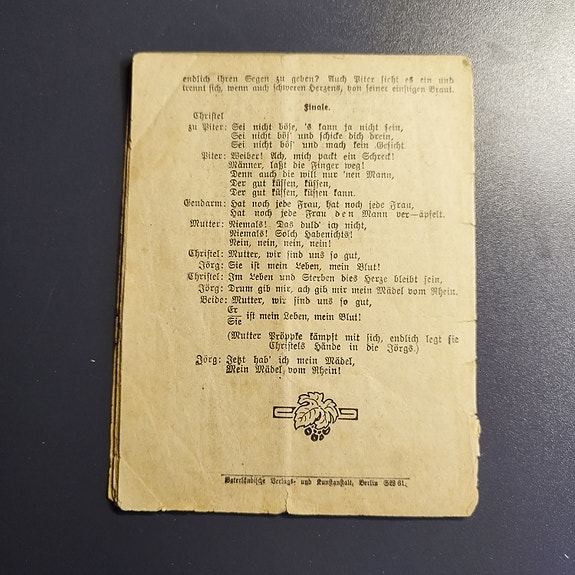 endlich ihren Segen zu geben? Auch Piter sieht es ein und
trennt sich, wenn auch schweren Herzens, von seiner einstigen Braut.
Finale.
Christel
zu Piter: Sei nicht böse, 's kann ja nicht sein,
Sei nicht bös' und schicke dich drein,
Sei nicht bös' und mach kein Gesicht.
Piter: Weiber! Ach, mich packt ein Schreck!
Männer, laßt die Finger weg!
Denn auch die will nur 'nen Mann,
Der gut küssen, küssen,
Der gut küssen, küssen kann.
Gendarm: Hat noch jede Frau, hat noch jede Frau,
Hat noch jede Frau den Mann ver—äpfelt.
Mutter: Niemals! Das duld' ich nicht,
Niemals! Solch Habenichts!
Nein, nein, nein, nein!
Christel: Mutter, wir sind uns so gut,
Jörg: Sie ist mein Leben, mein Blut!
Christel: Im Leben und Sterben dies Herze bleibt sein,
Jörg: Drum gib mir, ach gib mir mein Mädel vom Rhein.
Beide: Mutter, wir sind uns so gut,
Er
Sie ist mein Leben, mein Blut!
(Mutter Pröppke kämpft mit sich, endlich legt sie
Christels Hände in die Jörgs.)
Jörg: Jetzt hab' ich mein Mädel,
Mein Mädel vom Rhein!
Vaterländische Verlags- und Kunstanstalt, Berlin SW 61.